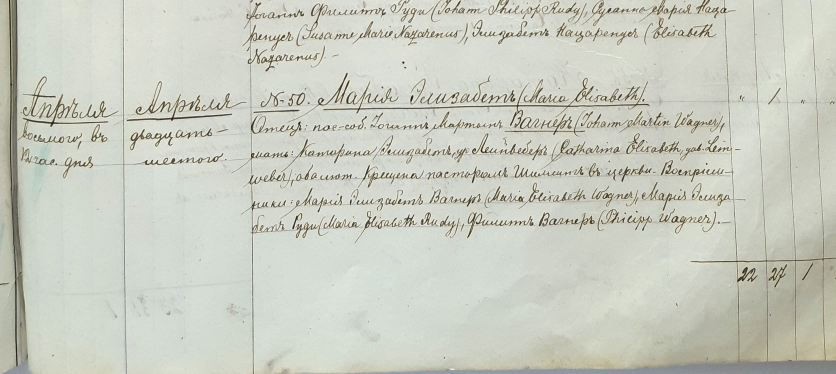 Іоганнъ Филиппъ Руди (Johann Philipp Rudy), Сусанна Марія Наца-
ренусъ (Susanne Marie Nazarenus), Элизабетъ Нацаренусъ (Elisabeth
Nazarenus). —
Апрѣля Апрѣля № 50. Марія Элизабетъ (Maria Elisabeth). " 1 " "
восьмого, въ двадцать- Отецъ: пос.-соб. Іоганнъ Мартынъ Вагнеръ (Johann Martin Wagner),
12 час. дня шестого. мать: Катарина Элизабетъ, ур. Лейнвеберъ (Catharina Elisabeth, geb. Lein-
weber), оба лют. Крещена пасторомъ въ церкви. Воспріем-
ники: Марія Элизабетъ Вагнеръ (Maria Elisabeth Wagner), Марія Элиза-
бетъ Руди (Maria Elisabeth Rudy), Филиппъ Вагнеръ (Philipp Wagner). —
22 27 1